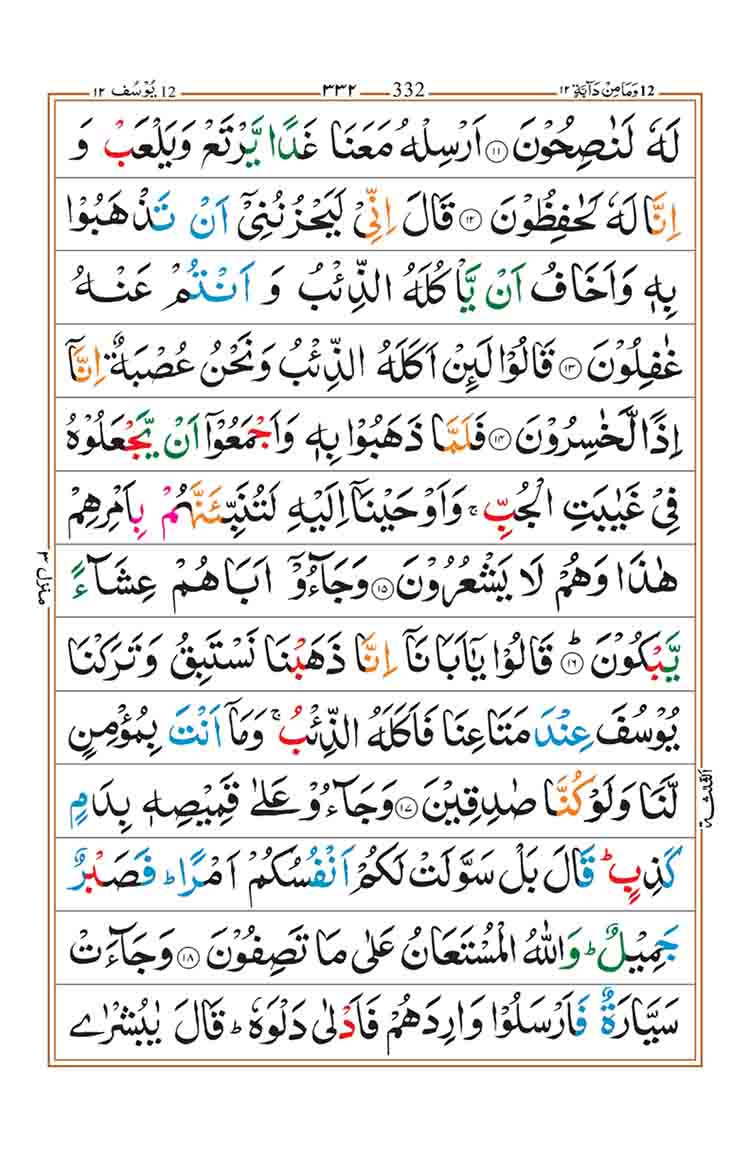 12 يُوْسُف ١٢ 332 ٣٣٢ 12 وَمَا مِنْ دَآبَّةٍ ١٢
لَهٗ لَنٰصِحُوْنَ ١١ اَرْسِلْهُ مَعَنَا غَدًا يَّرْتَعْ وَيَلْعَبْ وَ
اِنَّا لَهٗ لَحٰفِظُوْنَ ١٢ قَالَ اِنِّيْ لَيَحْزُنُنِيْۤ اَنْ تَذْهَبُوْا
بِهٖ وَاَخَافُ اَنْ يَّاْكُلَهُ الذِّئْبُ وَ اَنْتُمْ عَنْهُ
غٰفِلُوْنَ ١٣ قَالُوْا لَئِنْ اَكَلَهُ الذِّئْبُ وَنَحْنُ عُصْبَةٌ اِنَّاۤ
اِذًا لَّخٰسِرُوْنَ ١٤ فَلَمَّا ذَهَبُوْا بِهٖ وَاَجْمَعُوْۤا اَنْ يَّجْعَلُوْهُ
فِيْ غَيٰبَتِ الْجُبِّ ۚ وَاَوْحَيْنَاۤ اِلَيْهِ لَتُنَبِّئَنَّهُمْ بِاَمْرِهِمْ
هٰذَا وَهُمْ لَا يَشْعُرُوْنَ ١٥ وَجَآءُوْۤ اَبَاهُمْ عِشَآءً
يَّبْكُوْنَ ؕ ١٦ قَالُوْا يٰۤاَبَانَاۤ اِنَّا ذَهَبْنَا نَسْتَبِقُ وَتَرَكْنَا
يُوْسُفَ عِنْدَ مَتَاعِنَا فَاَكَلَهُ الذِّئْبُ ۚ وَمَاۤ اَنْتَ بِمُؤْمِنٍ
لَّنَا وَلَوْ كُنَّا صٰدِقِيْنَ ١٧ وَجَآءُوْ عَلٰى قَمِيْصِهٖ بِدَمٍ
كَذِبٍ ؕ قَالَ بَلْ سَوَّلَتْ لَكُمْ اَنْفُسُكُمْ اَمْرًا ؕ فَصَبْرٌ
جَمِيْلٌ ؕ وَاللّٰهُ الْمُسْتَعَانُ عَلٰى مَا تَصِفُوْنَ ١٨ وَجَآءَتْ
سَيَّارَةٌ فَاَرْسَلُوْا وَارِدَهُمْ فَاَدْلٰى دَلْوَهٗ ؕ قَالَ يٰبُشْرٰى
منزل ٣
الثلثة